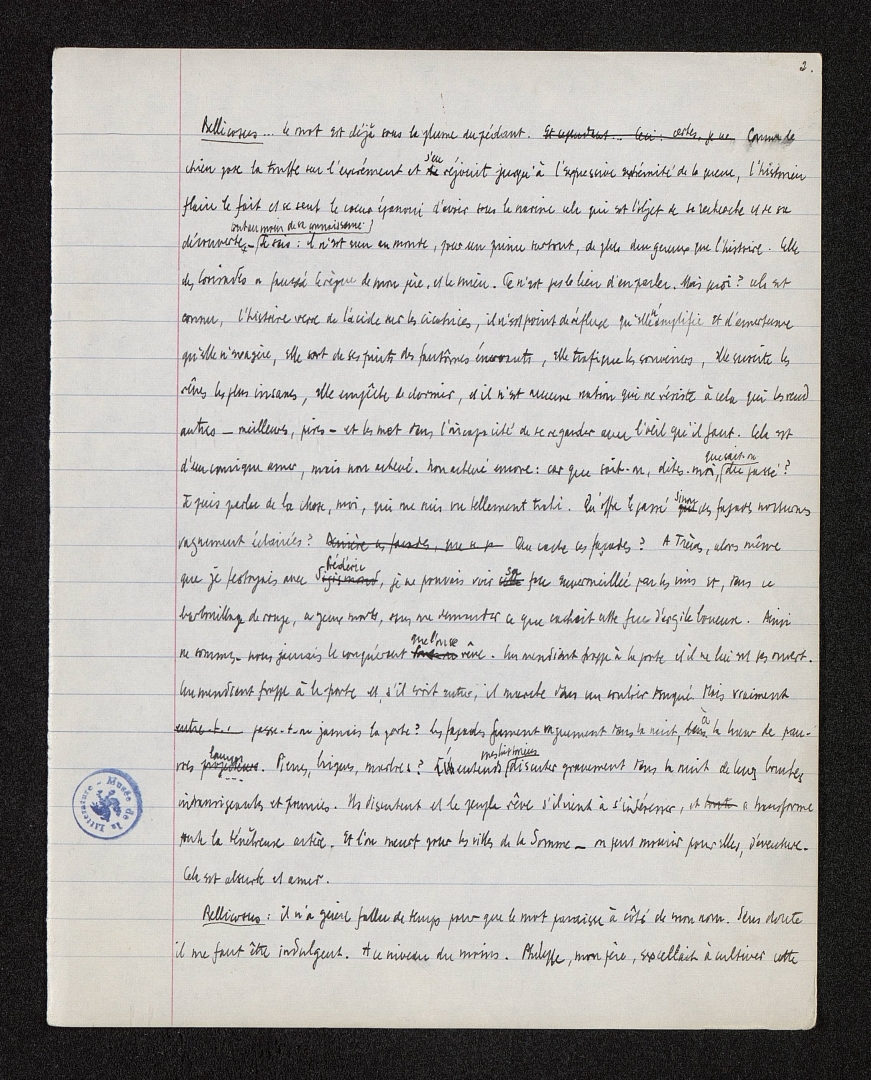 2.
Bellicosus... le mot est déjà sous la plume du pédant. Et cependant... Ceci : certes, je ne Comme le
chien pose la truffe sur l'excrément et s'en réjouit jusqu'à l'expressive extrémité de la queue, l'historien
flaire le fait et se sent le coeur épanoui d'avoir sous la narine cela qui est l'objet de sa recherche et de sa
ou tout au moins de sa connaissance
découverte. Je sais : il n'est rien au monde, pour un prince surtout, de plus dangereux que l'histoire. Celle
des a faussé le règne de mon père, et le mien. Ce n'est pas le lieu d'en parler. Mais quoi ? cela est
connu, l'histoire verse de l'acide sur les cicatrices, il n'est point de réflexe qu'elle n'amplifie et d'amertume
qu'elle n'exagère, elle sort de ses puits des fantômes énervants, elle trafique les souvenirs, elle suscite les
rêves les plus insanes, elle empêche de dormir, et il n'est aucune nation qui ne résiste à cela qui les rend
autres — meilleures, pires — et les met dans l'incapacité de se regarder avec l'oeil qu'il faut. Cela est
d'un comique amer, mais non achevé. Non achevé encore : car que sait-on, dites-moi, que sait-on du passé ?
Je puis parler de la chose, moi, qui me suis vu tellement trahi. Qu'offre le passé sinon des façades nocturnes
vaguement éclairées ? Derrière ces façades, que se p Que cache ces façades ? A Trèves, alors même
que je festoyais avec Sigismond Frédéric, je ne pouvais voir cette sa face envermeillée par les vins et, dans ce
barbouillage de rouge, ces yeux morts, sans me demander ce que cachait cette face d'argile boueuse. Ainsi
ne sommes-nous jamais le conquérant que l'on se rêve. Un mendiant frappe à la porte et il ne lui est pas ouvert.
Un mendiant frappe à la porte et, s'il croit entrer, il marche dans un couloir tronqué. Mais vraiment
entre-t- passe-t-on jamais la porte ? Les façades fument vaguement dans la nuit, dans à la lueur de pau-
vres projecteurs lampes. Pierres, briques, marbres ? J'entends mes historiens discuter gravement dans la nuit de leurs bouches
intransigeantes et punies. Ils discutent et le peuple rêve s'il vient à s'intéresser, et a transformé
toute la ténébreuse artère. Et l'on meurt pour les villes de la Somme — on peut mourir pour elles, d'aventure.
Cela est absurde et amer.
Bellicosus : il n'a guère fallu de temps pour que le mot paraisse à côté de mon nom. Sans doute
il me faut être indulgent. A ce niveau du moins. Philippe, mon père, excellait à cultiver cette
Musée de la Littérature